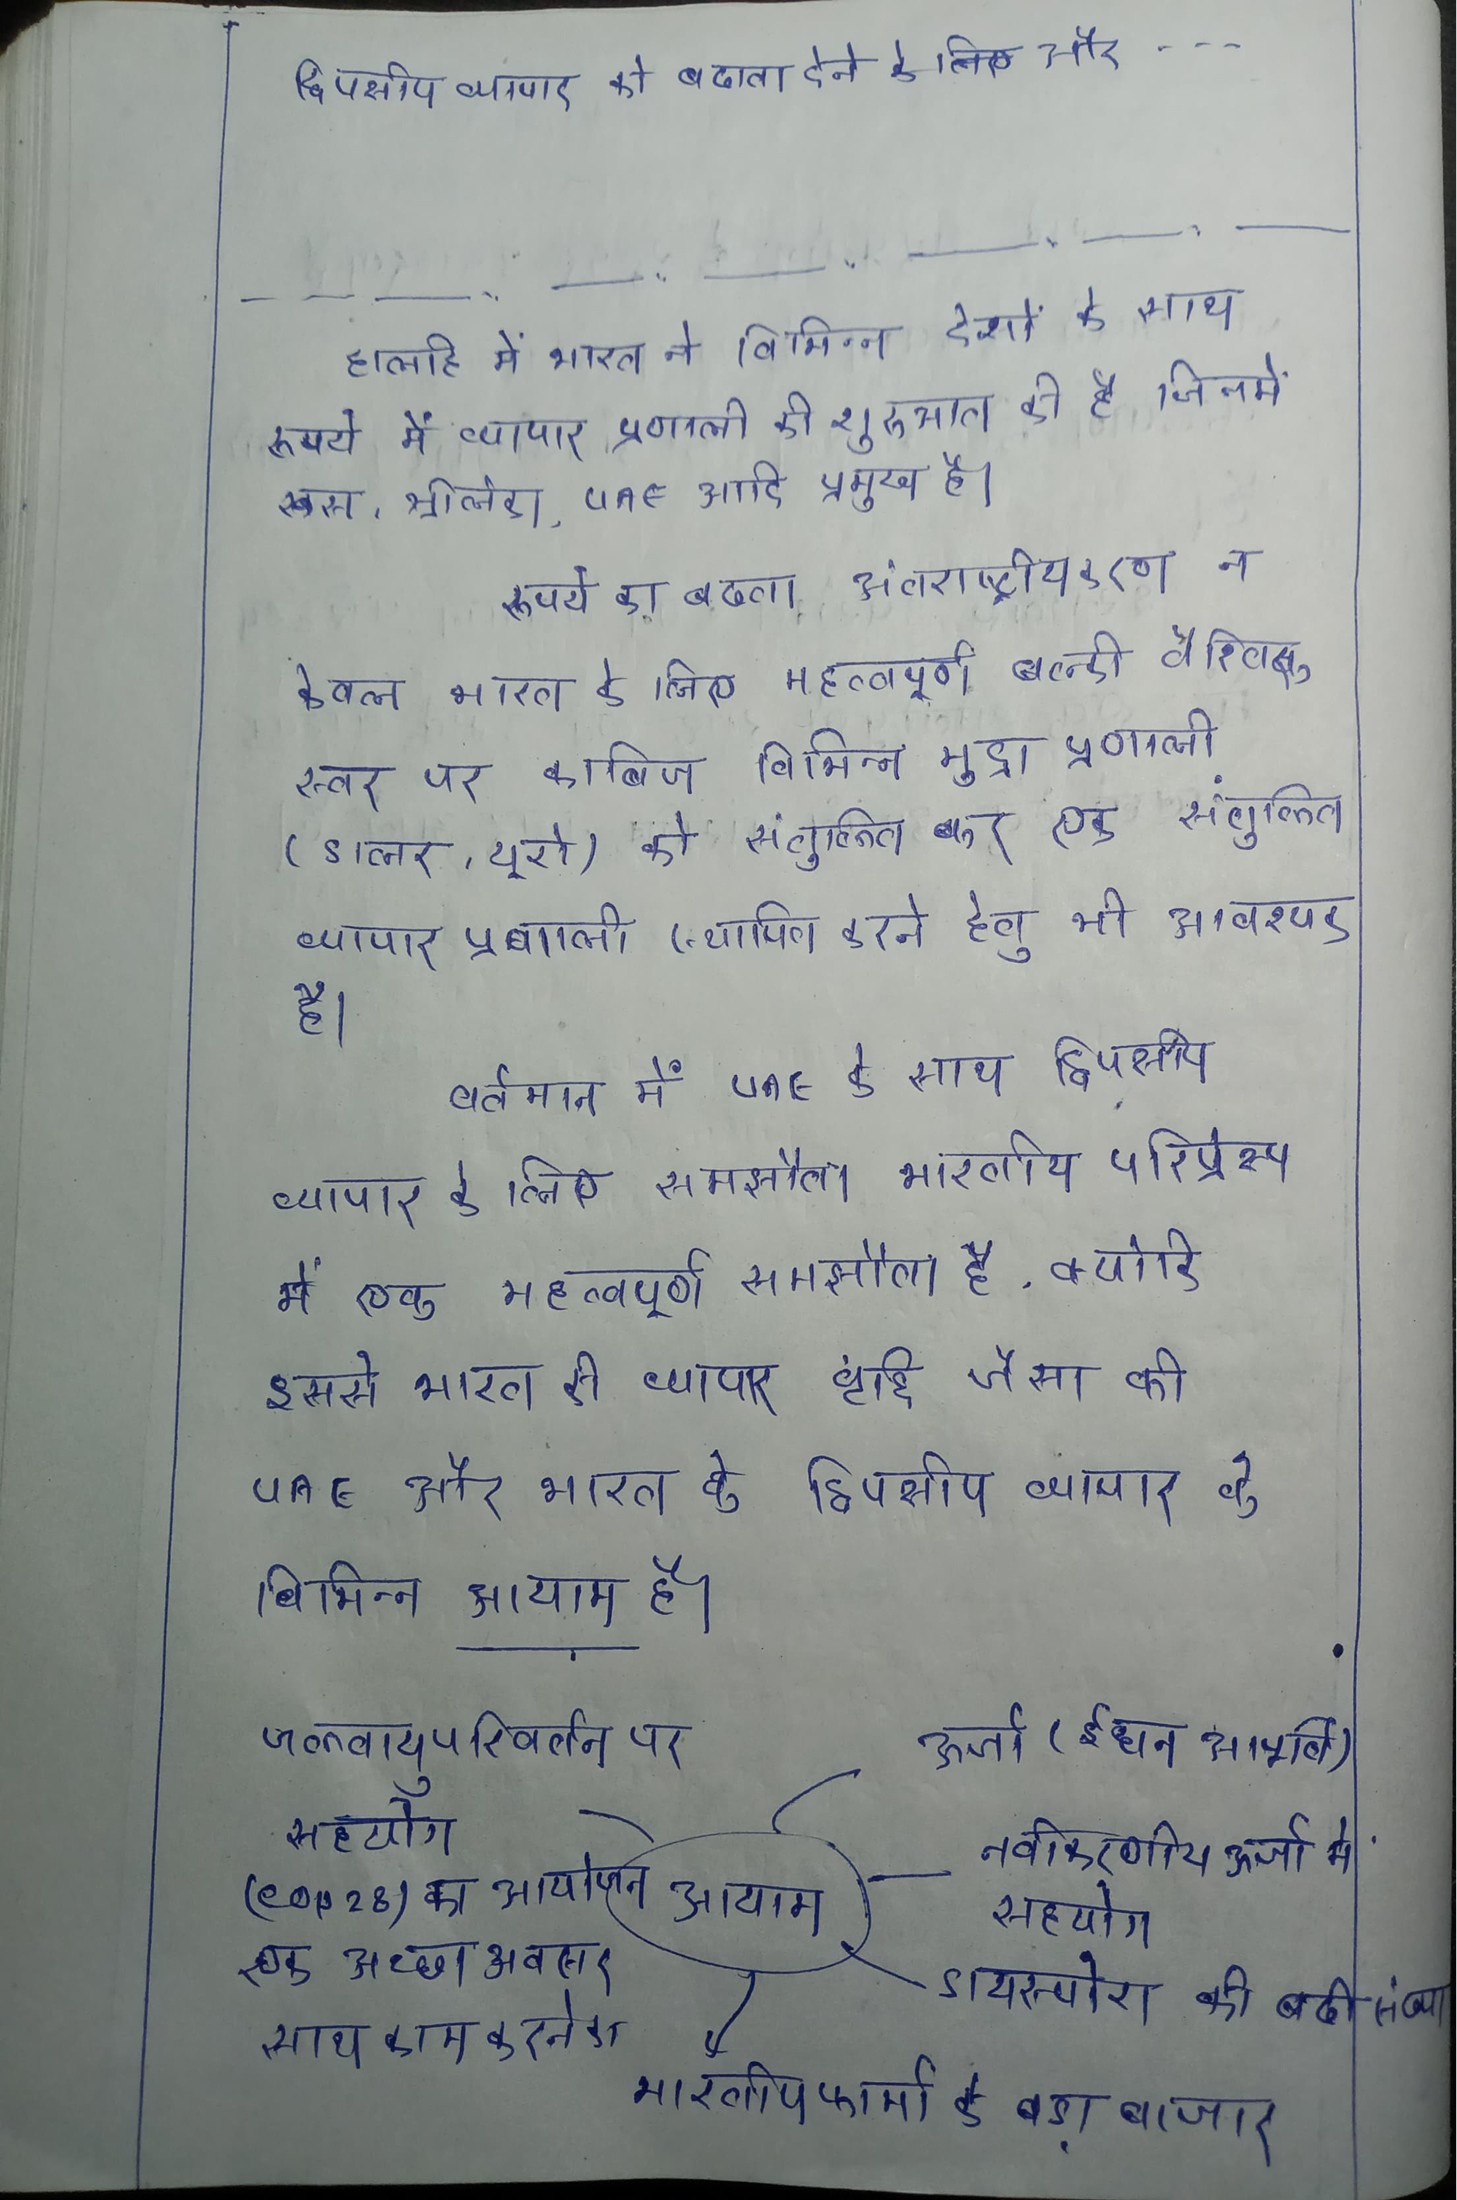 द्विपक्षीय व्यापार को बढावा देने के लिए और ----
हालहि में भारत ने विभिन्न देशों के साथ
रूपये में व्यापार प्रणाली की शुरुआत की है जिनमें
रूस, श्रीलंका, UAE आदि प्रमुख है।
रूपये का बढता अंतराष्ट्रीयकरण न
केवल भारत के लिए महत्वपूर्ण बल्की वैश्विक
स्तर पर काबिज विभिन्न मुद्रा प्रणाली
(डालर, यूरो) को संतुलित कर एक संतुलित
व्यापार प्रणाली स्थापित करने हेतु भी आवश्यक
है।
वर्तमान में UAE के साथ द्विपक्षीय
व्यापार के लिए समझौता भारतीय परिप्रेक्ष्य
में एक महत्वपूर्ण समझौता है, क्योकि
इससे भारत की व्यापार वृद्दि जैसा की
UAE और भारत के द्विपक्षीय व्यापार के
विभिन्न आयाम है।
जलवायु परिवर्तन पर
सहयोग
(COP 28) का आयोजन
एक अच्छा अवसर
साथ काम करने का
आयाम
ऊर्जा (ईंधन आपूर्ति)
नवीकरणीय ऊर्जा में
सहयोग
डायस्पोरा की बढी संख्या
भारतीय फार्मा के बडा बाजार